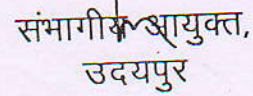 संभागीय आयुक्त,
उदयपुर